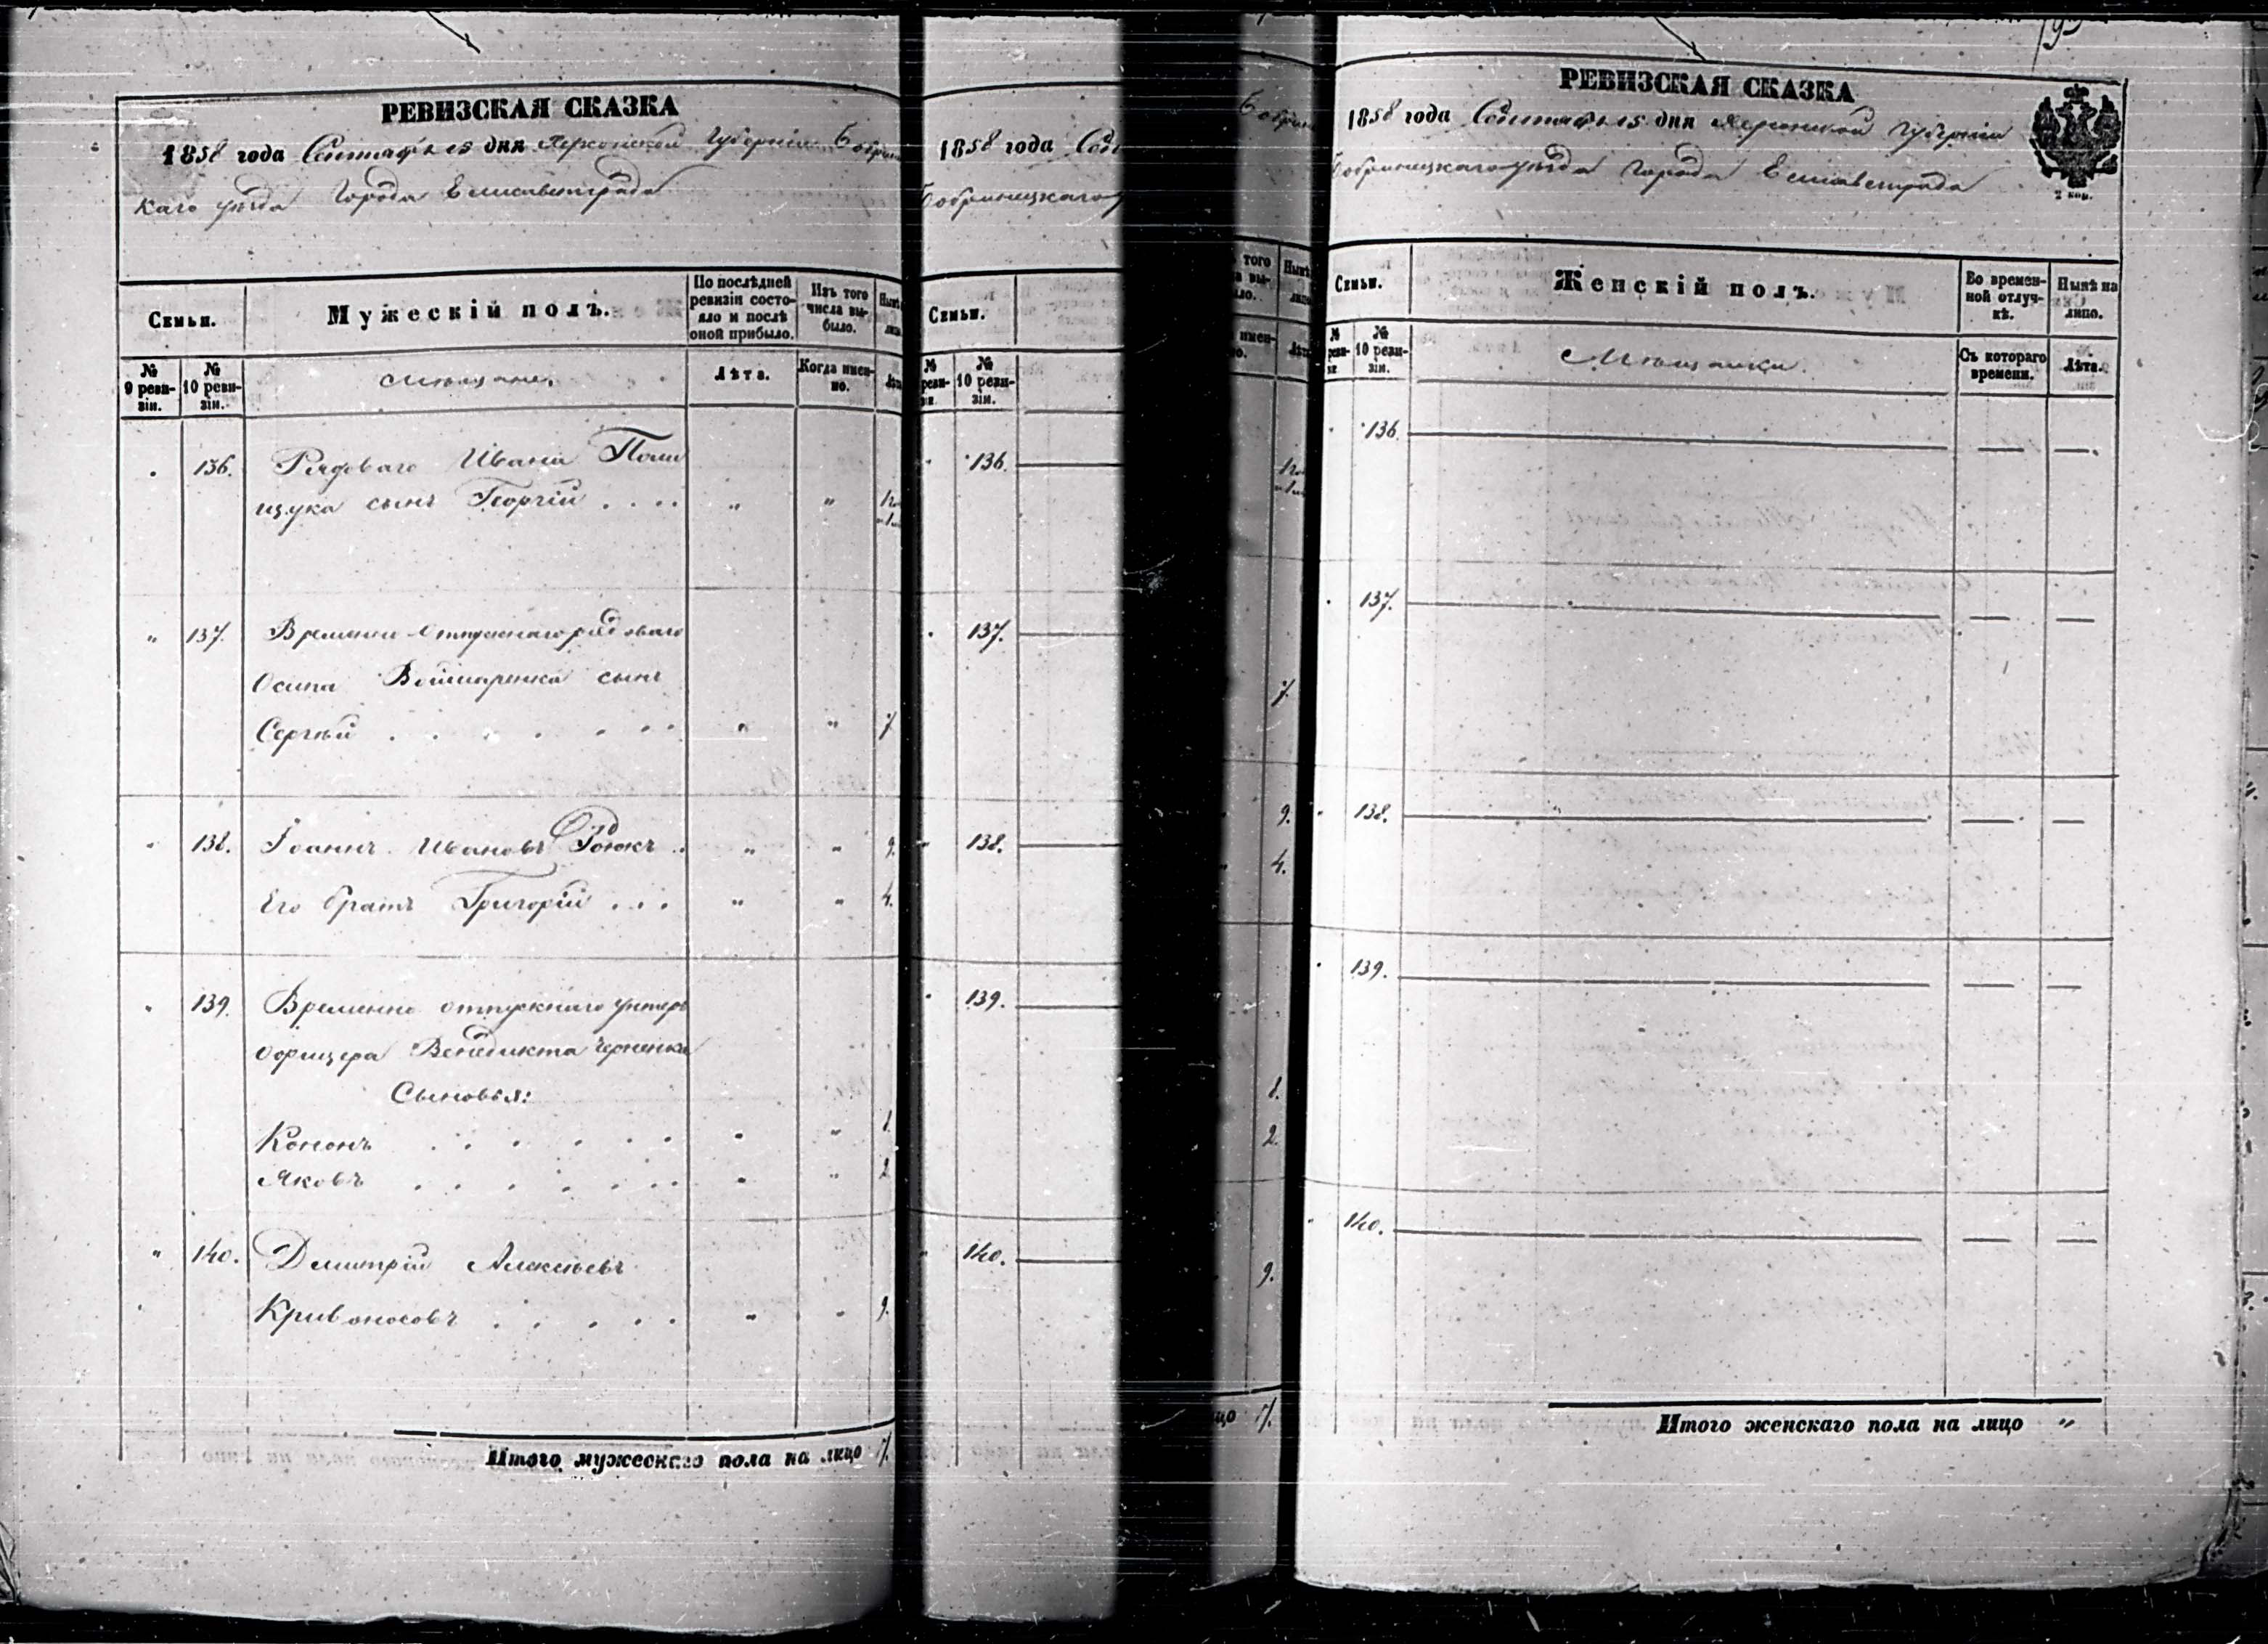 РЕВИЗСКАЯ СКАЗКА
1858 года Сентября 15 дня Херсонской Губерніи Бобринец
каго уѣзда Города Елисаветграда
Семьи.
Мужескій полъ.
По послѣдней ревизіи состояло и послѣ оной прибыло.
Изъ того числа выбыло.
№ 9 ревизіи.
№ 10 ревизіи.
Мѣщане.
Лѣта.
Когда именно.
136. Рядоваго Ивана Поли
щука сынъ Георгій . . . . " "
" 137. Временно-Отпускнаго рядоваго
Осипа сынъ
Сергѣй . . . . . . . " " 7
" 138. Іоаннъ Ивановъ . . " " 9.
Его братъ Григорій . . . " " 4.
" 139. Временно отпускнаго унтеръ
офицера Венедикта Черненка
Сыновья:
Кононъ . . . . . " " 1.
Яковъ . . . . . . . " " 2
" 140. Дмитрій Алексѣевъ
Кривоносовъ . . . . . " " 9.
Итого мужескаго пола на лицо 7.
1858 года Сен
Бобринецкаго у
Семьи.
№ 10 ревизіи.
136.
137.
138.
139.
140.
Бобрин
того
7.
9.
4.
1.
2.
9.
цо 7.
РЕВИЗСКАЯ СКАЗКА
1858 года Сентября 15 дня Херсонской Губерніи
Бобринецкаго уѣзда Города Елисаветграда
2 коп.
Семьи.
Женскій полъ.
Во временной отлучкѣ.
Нынѣ на лицо.
№ 10 ревизіи.
Мѣщанки.
Съ котораго времени.
Лѣта.
136.
137.
138.
139.
140.
Итого женскаго пола на лицо "